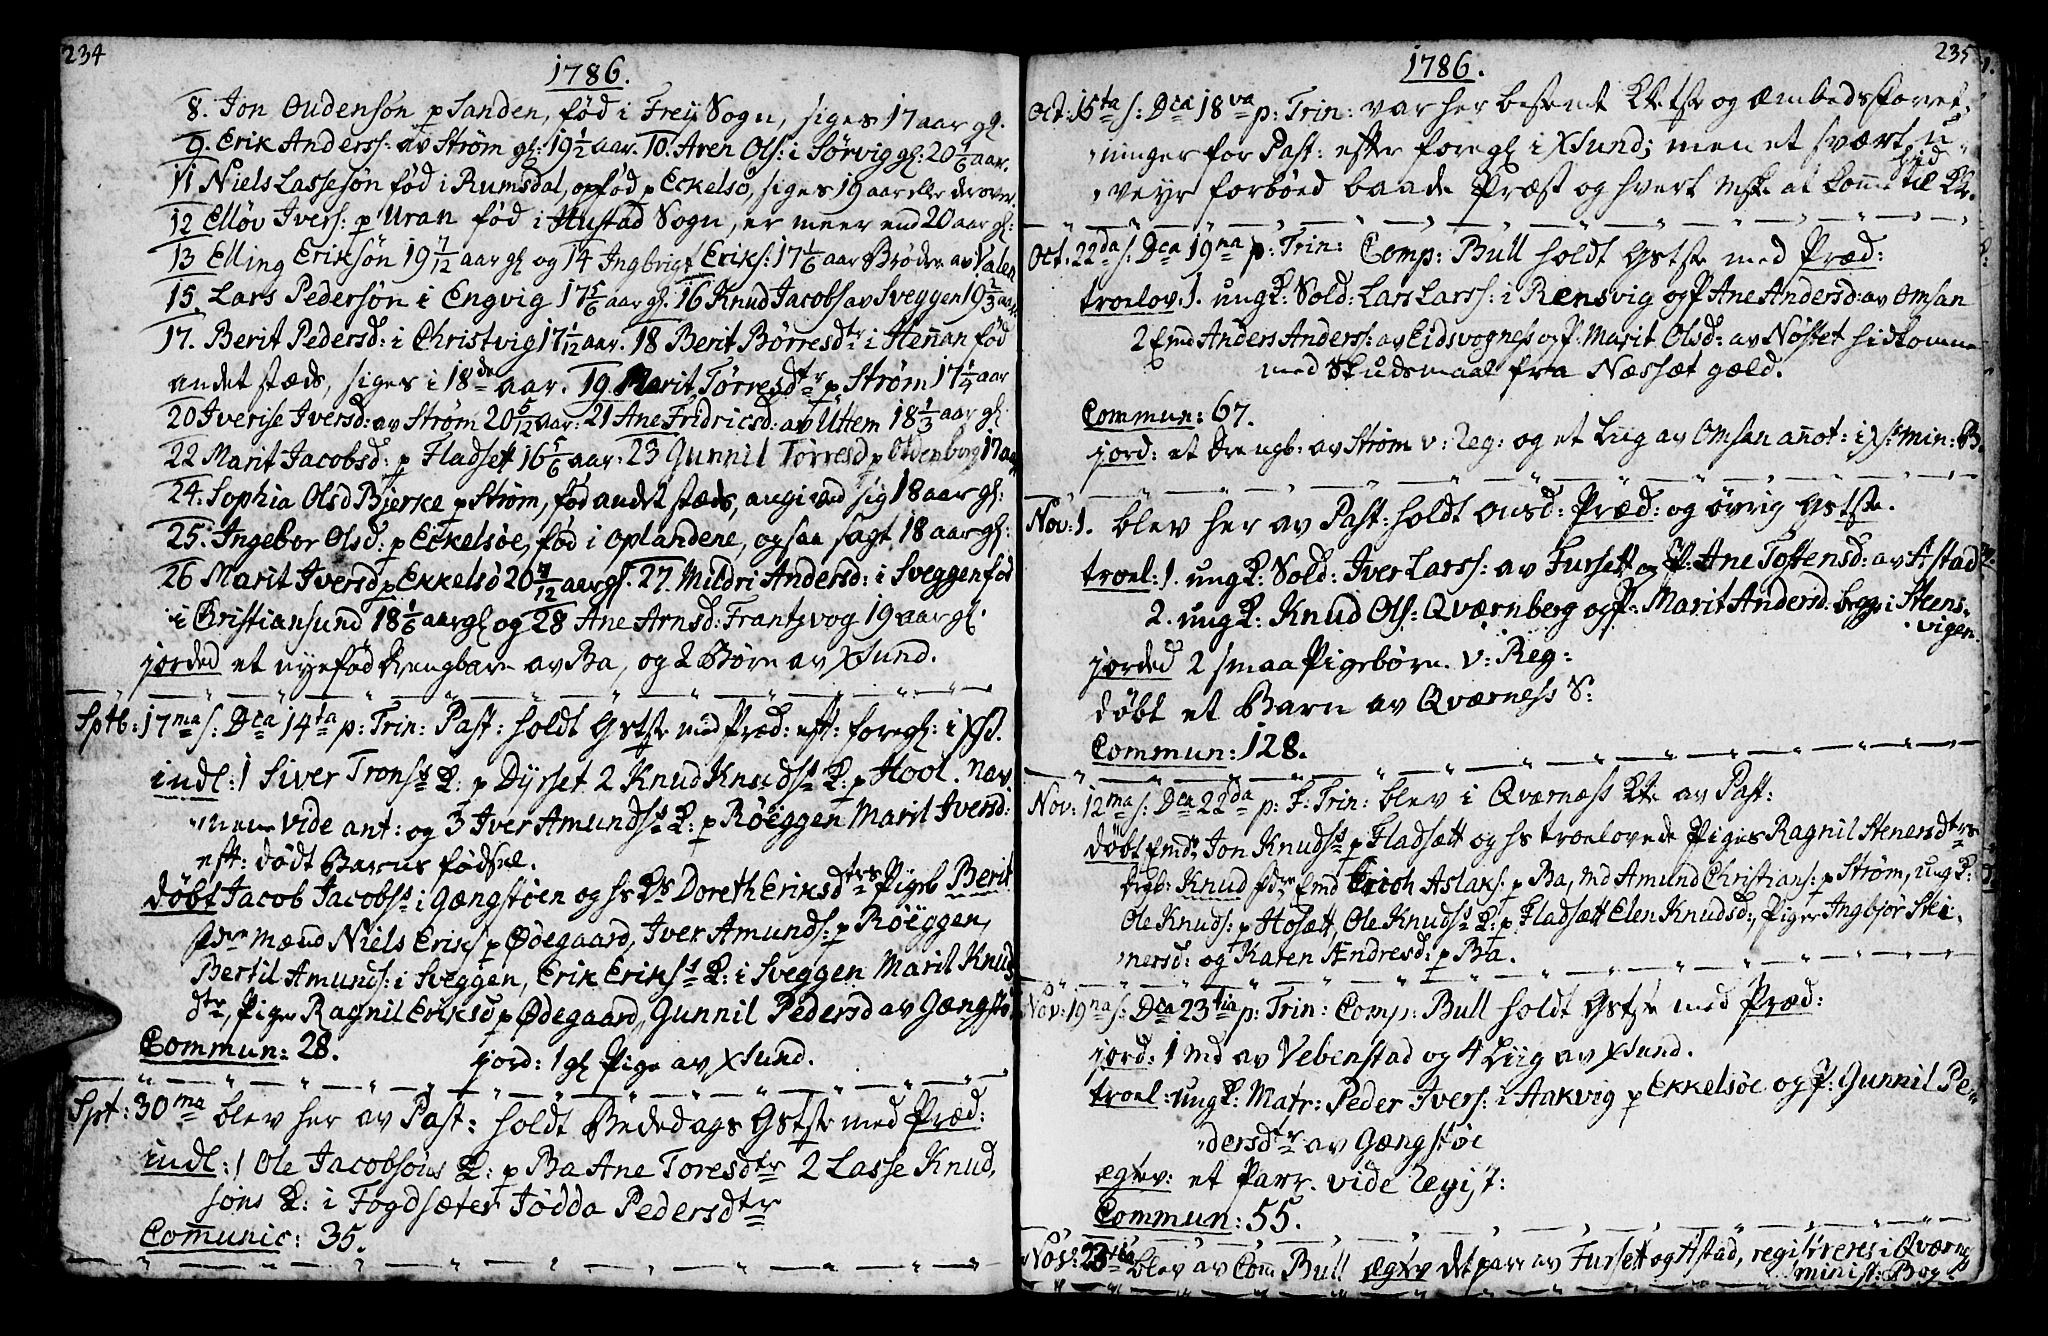 234
1786.
8. Jon Oudensøn p Sanden, fød i Frey Sogn, siges 17 aar gl.
9. Erik Anderss: av Strøm gl: 19 1/2 aar. 10. Aren Ols: i Sørvig gl: 20 1/6 aar.
11 Niels Lassesøn fød i Rumsdal, opfød p Eckelsø, siges 19 aar eller derover.
12 Elløv Ivers: p Uran fød i Hustad Sogn, er meer end 20 aar gl:
13 Elling Eriksøn 19 7/12 aar gl og 14 Ingbrigt Eriks: 17 1/6 aar Brødre av Valen
15. Lars Pedersøn i Engvig 17 5/6 aar gl. 16 Knud Jacobs av Sveggen 19 2/3 aar
17. Berit Pedersd: i Christvig 17 1/12 aar. 18 Berit Børresdtr i Hennan fød
andet stæds, siges i 18de aar. 19 Marit Tørresdtr p Strøm 17 1/4 aar
20 Iverise Iversd: av Strøm 20 5/12 aar: 21 Ane Fridricsd: av Uttem 18 1/3 aar gl:
22 Marit Jacobsd: p Fladsett 16 5/6 aar: 23 Gunnil Tørresd p Oldenborg 17 aar
24. Sophia Olsd Bjerke p Strøm, fød andet stæds, angived sig 18 aar gl:
25. Ingebor Olsd: p Eckelsøe, fød i Oplandene, og saa sagt 18 aar gl:
26 Marit Iversd p Ekkelsø 20 7/12 aar gl. 27. Mildri Andersd: i Sveggen fød
i Christiansund 18 1/6 aar gl og 28 Ane Arnsd: Frantzvog 19 aar gl.
jorded et nyefød drengbarn av Ba, og 2 Børn av XSund.
Sptb: 17ma s: Dca 14ta p: Trin: Past: holdt Gstste med Præd: eft: foregl: i XSd.
indl: 1 Siver Tronss K: p Dyrset 2 Knud Knudss K: p Hool. nav
mene vide ant: og 3 Iver Amundss K: p Røeggen Marit Iversd:
eft: dødt Barns fødsel.
døbt Jacob Jacobss i Gængstøen og hs Ks Doreth Eriksdtrs Pigeb Berit
fdre Mænd Niels Eriks p Øøegaard, Iver Amunds: p Røeggen,
Bertil Amunds: i Sveggen, Erik Erikss K: i Sveggen Marit Knuds
dtr, Piger Ragnil Eriksd p Ødegaard, Gunnil Pedersd av Gængstø
Commun: 28. jord: 1 gl Pige av XSund.
Spt: 30ma blev her av Past: holdt Bededags Gstste med Præd:
indl: 1 Ole Jacobsøns K: p Ba Ane Toresdtr 2 Lasse Knud,
søns K: i Fogdsæter Jødda Pedersdtr
Comunic: 35.
235
1786.
Oct: 15ta s: Dca 18va p: Trin: var her besemt Kketste og Embedsforret,
ninger for Past: efter foregl i XSund; men et svært u,
veyr forbøed baade Præst og hvert Mske at komme hid til Kk.
Oct: 22da s: Dca 19na p: Trin: Comp: Bull holdt Gstste med Præd:
troelov: 1. ungK: Sold: Lars Larss: i Rensvig og P Ane Andersd: av Omsan
2 Emd Anders Anderss: av Eidsvogness og P: Marit Olsd: av Nøstet hidkomne
med Skudsmaal fra Næssæt gæld.
Commun: 67.
jord: et drengb: av Strøm v: Reg: og et Liig av Omsan annot: i XS: min: B.
Nov: 1. blev her av Past: holdt Onsd: Præd: og øvrig Gstste.
troel: 1. ungK: Sold: Iver Larss: av Fursett og P: Ane Tostensd: av Astad
2. ungK: Knud Ols: Qværnberg og P: Marit Andersd. begge i Steens,
vigen.
jorded 2 smaa Pigebørn. v: Reg:
døbt et Barn av Qværness S:
Commun: 128.
Nov: 12ma s: Dca 22da p: F: Trin: blev i Qværness Kke av Past:
døbt Emds Jon Knudss p Fladsætt og hs troelovede Piges Ragnil Stenersdtrs
drgb: Knud fdre Emd Erich Aslaks: p Ba, Md Amund Christians: p Strøm, ungK:
Ole Knuds: p Hosætt, Ole Knudss K: p Fladsætt Elen Knudsd:, Piger Ingbjor Ste,
nersd: og Karen Andresd: p Ba.
Nov: 19na s: Dca 23tia p: Trin: Comp: Bull holdt Gstste med Præd:
jord: 1 Md av Vebenstad og 4 Liig av XSund.
troel: ungK: Matr: Peder Ivers: i Aakvig p Ekkelsøe og P: Gunnil Pe,
dersdtr av Gængstøe
ægtev: et Parr. vide Regist:
Commun: 55.
Nov: 23tia blev av Com Bull ægtev det par av Fursett og Astad, registreres i Qværness
minist: Bog.